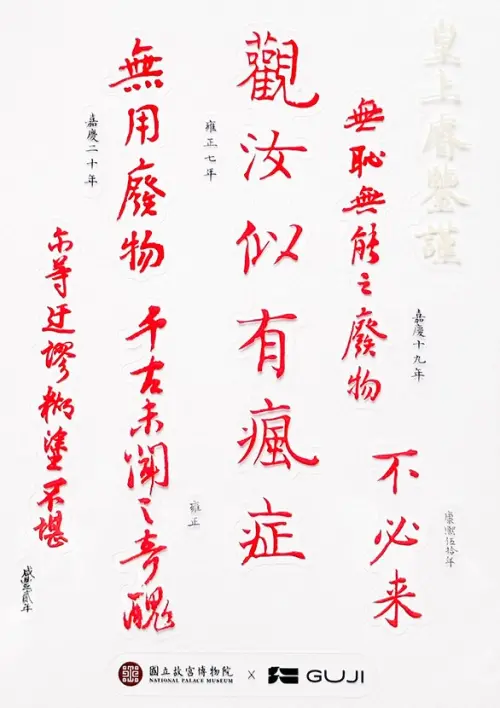 皇上睿鑒謹
無恥無能之廢物
嘉慶十九年
不必来
康熙伍拾年
觀汝似有瘋症
雍正七年
無用廢物
嘉慶二十年
千古未聞之奇醜
雍正
尔等迂謬糊塗不堪
咸豐貳年
國立故宮博物院
NATIONAL PALACE MUSEUM
X
GUJI